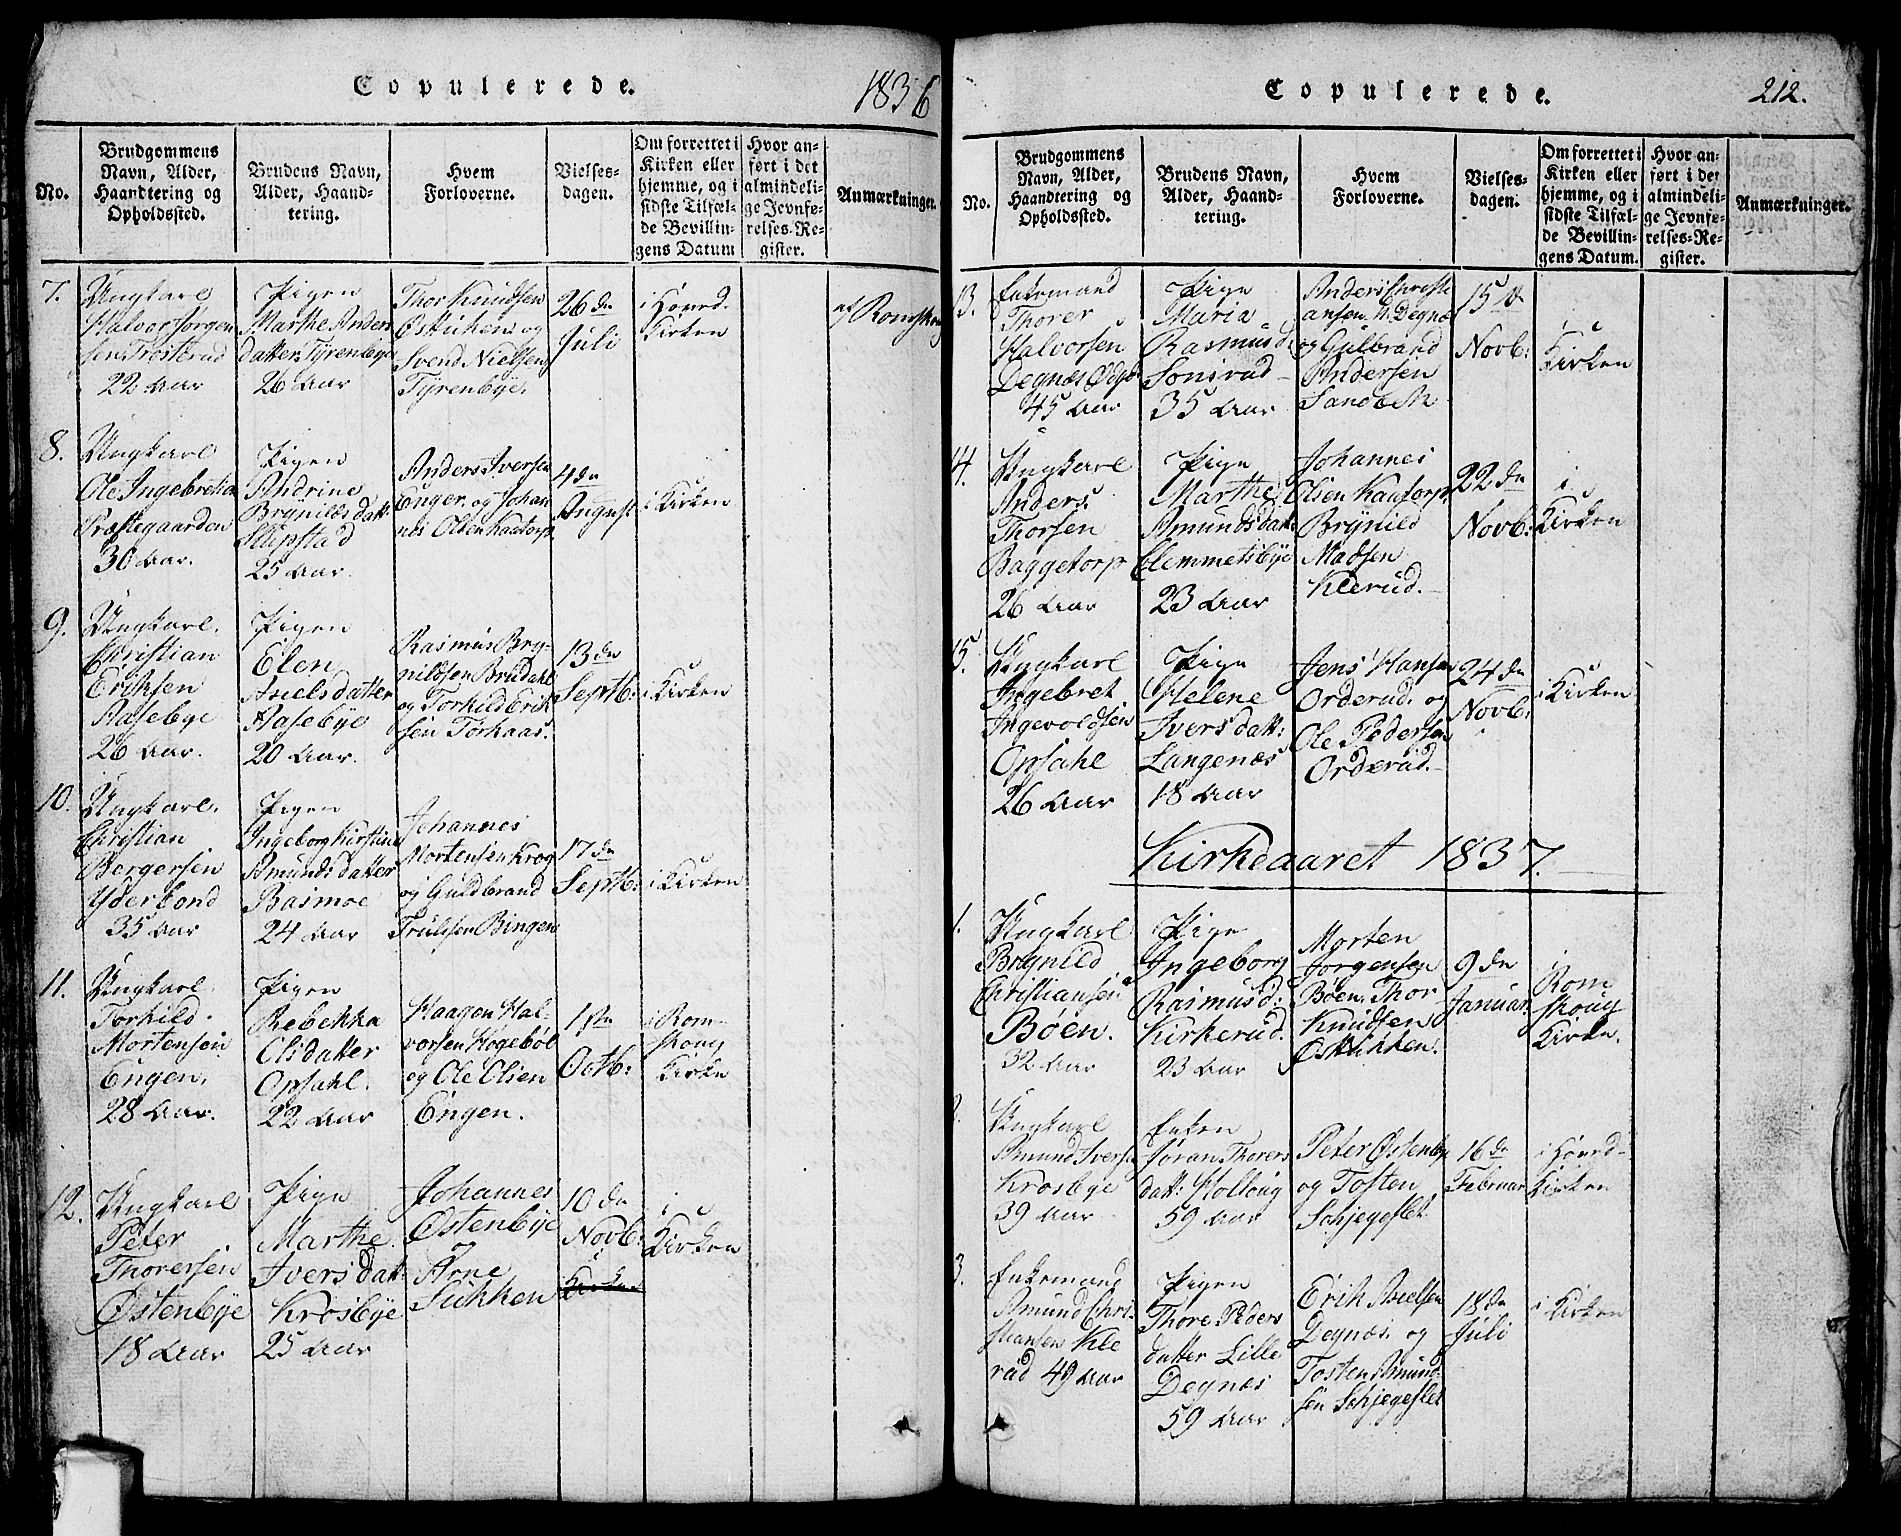 Copulerede.
1836
No.
Brudgommens
Navn, Alder,
Haandtering og
Opholdssted.
Brudens Navn,
Alder, Haand-
tering.
Hvem
Forloverne.
Vielses-
dagen.
Om forrettet i
Kirken eller
hjemme, og i
sidste Tilfæl-
de Bevillin-
gens Datum
Hvor an-
ført i det
almindeli-
ge Jevnfø-
relses-Re-
gister.
Anmærkninger.
7.
Ungkarl
Halvor Jørgen
sen Trosterud
22 Aar
Pigen
Marthe Anders
datter Tyrenbye
26 Aar
Thor Knudsen
Østuken og
Svend Nielsen
Tyrenbye.
26 de
Juli
i Hoved
Kirken
af Romskoug
8.
Ungkarl
Ole Ingebretsen
Præstegaarden
30 Aar.
Pigen
Andrine
Brynilds datt:
Slipstad
25 Aar.
Anders Iversen
Enger og Johan
nes Olsen Kaatorp
4 de
August
i Kirken
9.
Ungkarl.
Christian
Eriksen
Aasebye
26 Aar.
Pigen
Elen
Axelsdatter
Aasebye
20 Aar.
Rasmus Bry-
nildsen Brudahl
og Torkild Erik
sen Torkaas.
13 de
Septb:
i Kirken
10.
Ungkarl.
Christian
Bergersen
Yderbond
35 Aar
Pigen
Ingeborg Kirstine
Amunds datter
Basmoe
24 Aar
Johannes
Mortensen Krog
og Guldbrand
Trulssen Bingen
17 de
Septb:
i Kirken
11.
Ungkarl
Torkild
Mortensen
Engen.
28 Aar.
Pigen
Rebekka
Olsdatter
Opsahl.
22 Aar
Haagen Hal-
vorsen Høgebøl
og Ole Olsen
Engen.
1ste
Octb:
i Rom-
skoug
Kirke
12.
Ungkarl
Peter
Thorersen
Østenbye
18 Aar
Pige
Marthe
Ivers datt:
Krosbye
25 Aar
Johannes
Østenbye
og
Arne
Sukken
10 de
Novb:
i
Kirken
Copulerede.
212.
No.
Brudgommens
Navn, Alder,
Haandtering og
Opholdssted.
Brudens Navn,
Alder, Haand-
tering.
Hvem
Forloverne.
Vielses-
dagen.
Om forrettet i
Kirken eller
hjemme, og i
sidste Tilfæl-
de Bevillin-
gens Datum.
Hvor an-
ført i det
almindeli-
ge Jevnfø-
relses-Re-
gister.
Anmærkninger.
13.
Enkemand
Thorer
Halvorsen
Degnæs
45 Aar
Pige
Maria
Rasmusd:
Sonsrud
35 Aar
Anders Christi
ansen N. Degnæs
og Gulbrand
Andersen
Sandbek
15 de
Novb:
i
Kirken
14.
Ungkarl
Anders
Thorsen
Baggetorp
26 Aar
Pige
Marthe
Amundsdatt:
Clemmetsbye
23 Aar
Johannes
Olsen Kaatorp,
Brynild
Madsen
Klerud.
22 de
Novb:
i
Kirken
15.
Ungkarl
Ingebret
Ingevoldsen
Opsahl
26 Aar
Pige
Helene
Ivers datt:
Langenæs
18 Aar
Jens Hansen
Orderud. og
Ole Pedersen
Orderud.
24 de
Novb:
i Kirken
Kirkeaaret 1837.
1.
Ungkarl
Brynild
Christiansen
Bøen.
32 Aar
Pige
Ingeborg
Rasmusd:
Kirkerud.
23 Aar
Morten
Jorgensen
Bøen. Thor
Knudsen
Østukken.
9 de
Januar
i
Rom
skoug
Kirke.
2.
Ungkarl
Amund Iversen
Krosbye
39 Aar
Enken
Jøran Thorers
datt: Holtoug
59 Aar
Peter Østenbye
og Tosten
Schjegeslet
16 de
Februar
i Hoved-
Kirken
3.
Enkemand
Amund Chri-
stiansen Kle
rud 49 Aar
Pigen
Thore Peders
datter Lille
Degnæs
59 Aar
Erik Axelsen
Degnæs. og
Tosten Amund
sen Schjegeslet
18 de
Juli
i Kirken